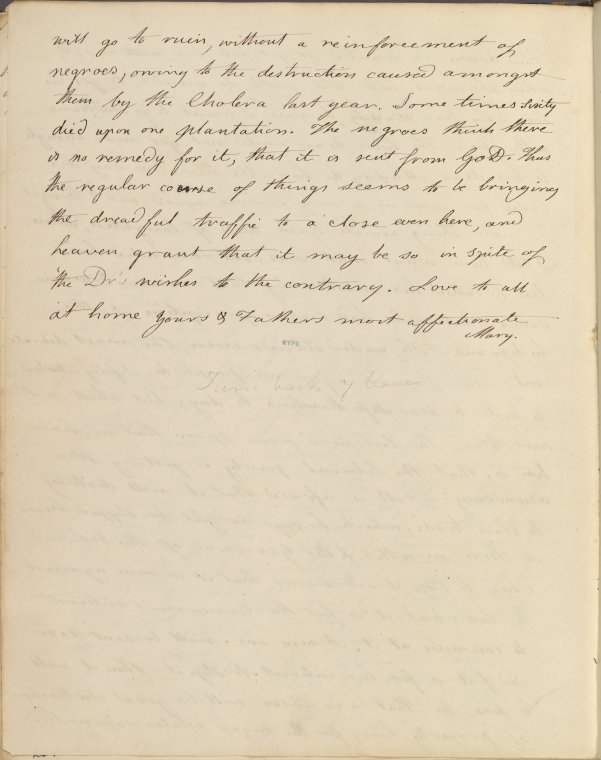 will go to ruin, without a reinforcement of
negroes, owing to the destruction caused amongst
them by the Cholera last year. Some times Sixty
died upon one plantation. The negroes think there
is no remedy for it, that it is sent from GoD. Thus
the regular course of things seems to be bringing
the dreadful traffic to a close even here, and
heaven grant that it may be so in spite of
the Dr's wishes to the contrary. Love to all
at home yours & Fathers most affectionate
Mary.
NYPL
Turn back